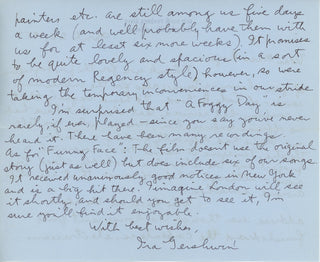 painters etc. are still among us five days
a week (and we'll probably have them with
us for at least six more weeks). It promises
to be quite lovely and spacious (in a sort
of modern Regency style) however, so we're
taking the temporary inconveniences in our stride.
I'm surprised that "A Foggy Day" is
rarely, if ever, played - since you say you've never
heard it. There have been many recordings.
As for "Funny Face": The film doesn't use the original
story (just as well) but does include six of our songs.
It received unanimously good notices in New York
and is a big hit there. I imagine London will see
it shortly, and should you get to see it, I'm
sure you'll find it enjoyable.
With best wishes,
Ira Gershwin